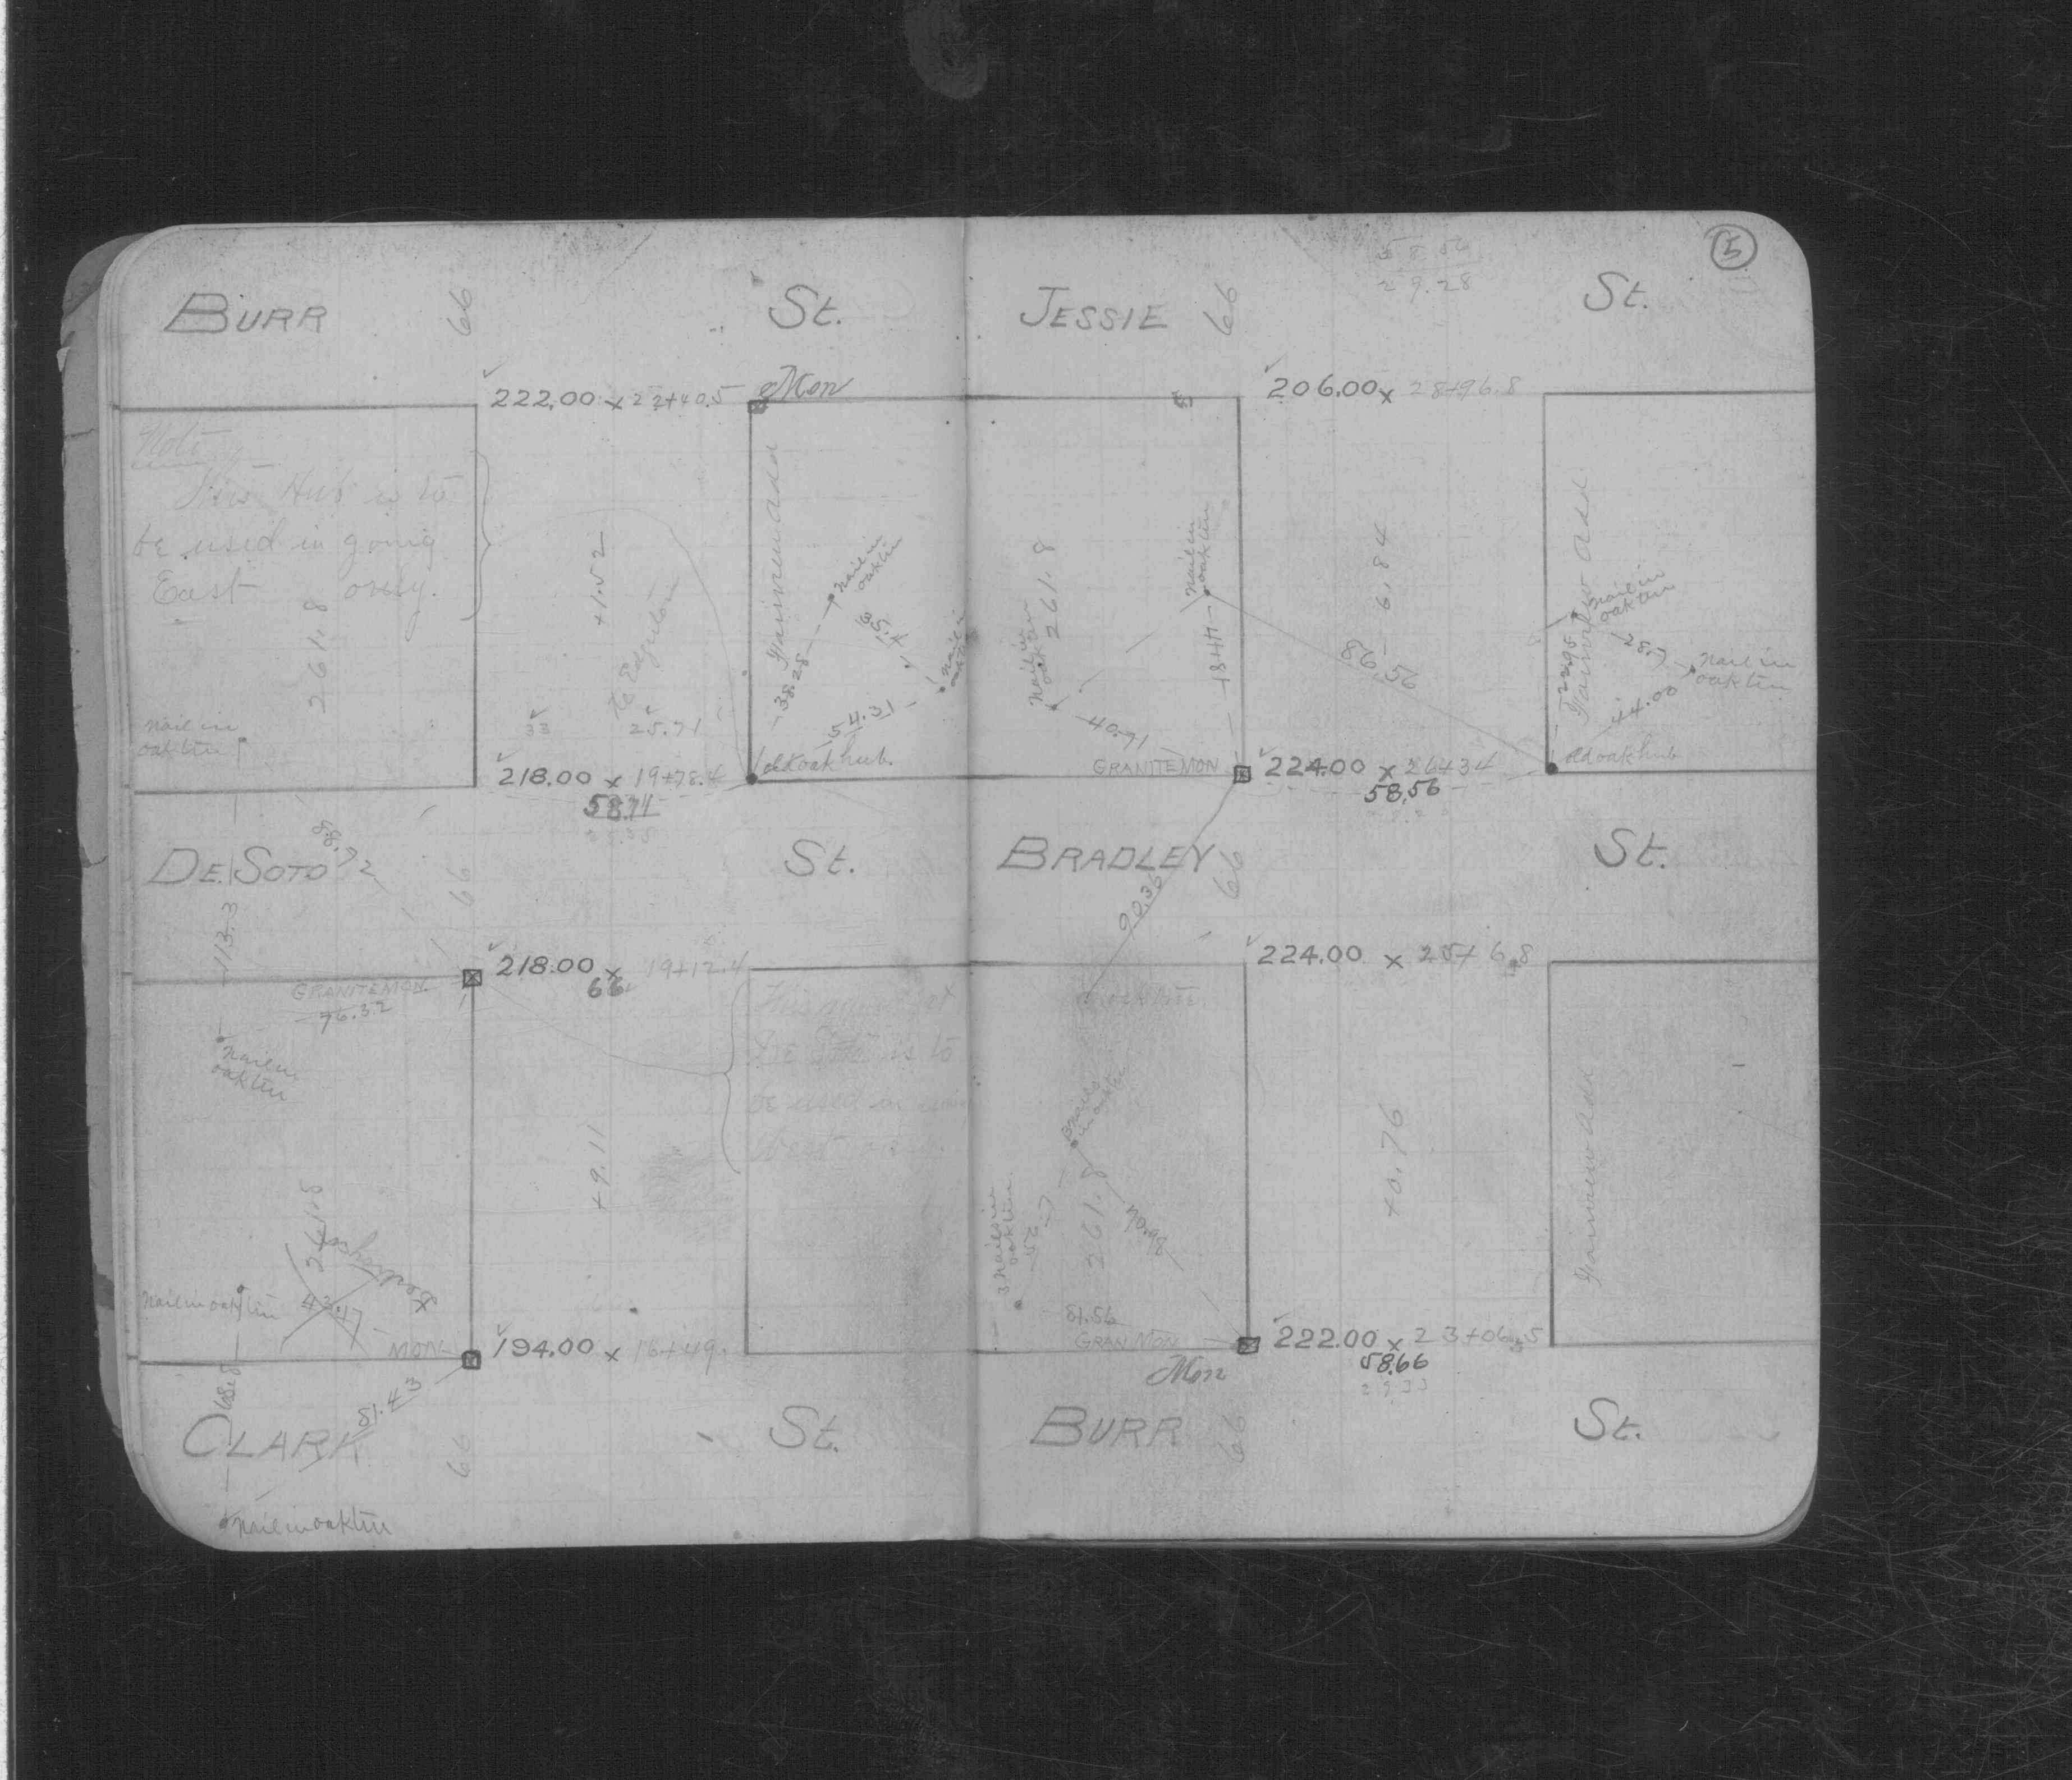 5
BURR 66 St.
222.00 x 22+40.5
Mon
Note
This Hub is to
be used in going
East only.
261.8
+1.52
to Edgerton
Fairview Add
Nail in
oak tree
38.28
Nail in
54.31
Nail in
oak tree
33
25.71
218.00 x 19+78.4
old oak hub.
58.71
DE SOTO 66 St.
88.72
113.3
218.00 x 19+12.4
66
GRANITE MON.
76.32
Nail in
oak tree
be used in
+9.11
261.8
Nail in oak tree
43.47
MON.
194.00 x 16+49.
81.43
68.8
CLARK 66 St.
Nail in oak tree
58.56
29.28
JESSIE 66 St.
206.00 x 28+96.8
261.8
Nail in
oak tree
Nail in
oak tree
18.44
40.71
6.84
86.56
Fairview Add
Nail in
oak tree
22.95
28.7
Nail in
oak tree
44.00
GRANITE MON
224.00 x 26+34
old oak hub
58.56
BRADLEY 66 St.
90.36
224.00 x 25+6.8
oak tree.
3 Nails
in oak tree
3 Nails in
oak tree
56
261.8
70.98
+0.76
Fairview Add
81.56
GRAN MON
222.00 x 23+06.5
58.66
29.33
Mon
BURR 66 St.